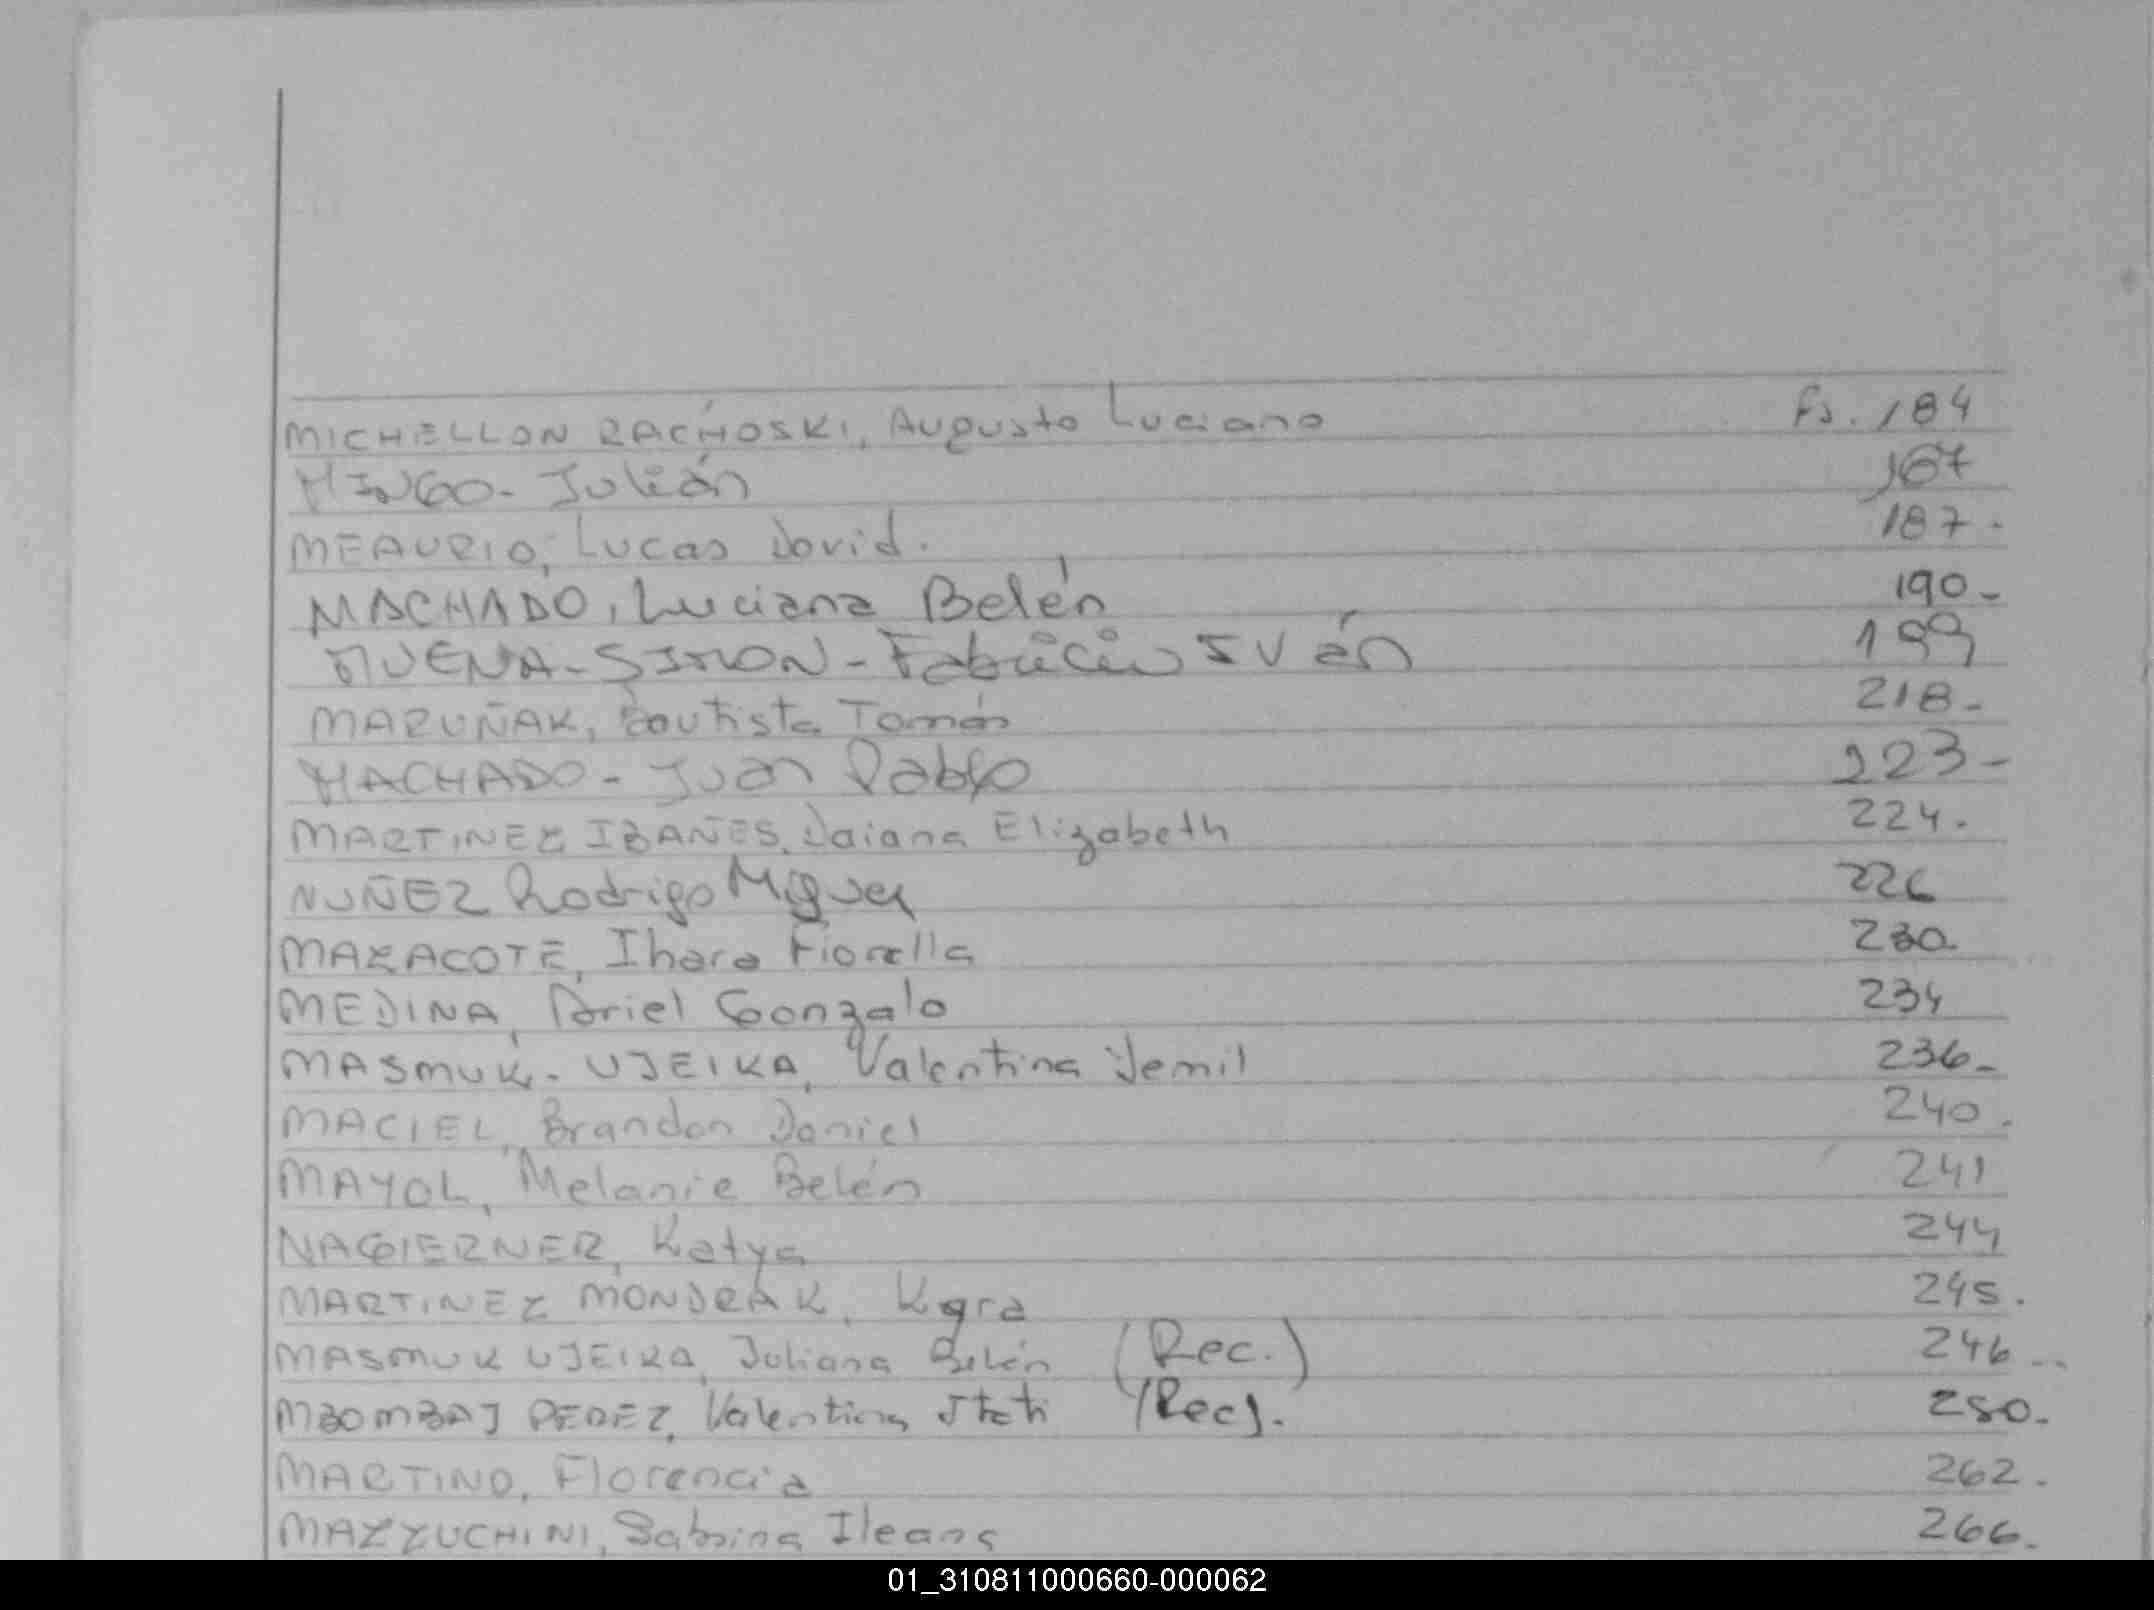 MICHELLON RACHOSKI, Augusto Luciano Fs. 184
MINGO - Julián 167
MEAURIO, Lucas David. 187.
MACHADO, Luciana Belén 190-
MUENA-SIMON - Fabricio IVán 199
MARUÑAK, Bautista Tomás 218-
MACHADO - Juan Pablo 223-
MARTINEZ IBAÑES, Daiana Elizabeth 224.
NUÑEZ Rodrigo Miguel 226
MAZACOTE, Ihara Fiorella 230.
MEDINA, Ariel Gonzalo 234
MASMUK - UJEIKA, Valentina Jemil 236-
MACIEL, Brandon Daniel 240.
MAYOL, Melanie Belén 241
NAGIERNER, Katya 244
MARTINEZ MONDRAK, Kyra 245.
MASMUK UJEIKA, Juliana Belén (Rec.) 246--
MBOMBAJ PEREZ, Valentina (Rec). 250.
MARTINO, Florencia 262.
MAZZUCHINI, Sabrina Ileana 266.
01_310811000660-000062